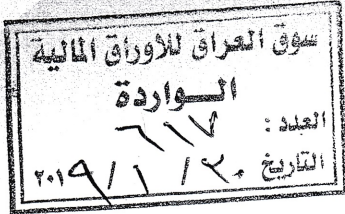 سوق العراق للأوراق المالية
الـــواردة
العدد : ٦١٧
التاريخ ٣٠ / ١ / ٢٠١٩